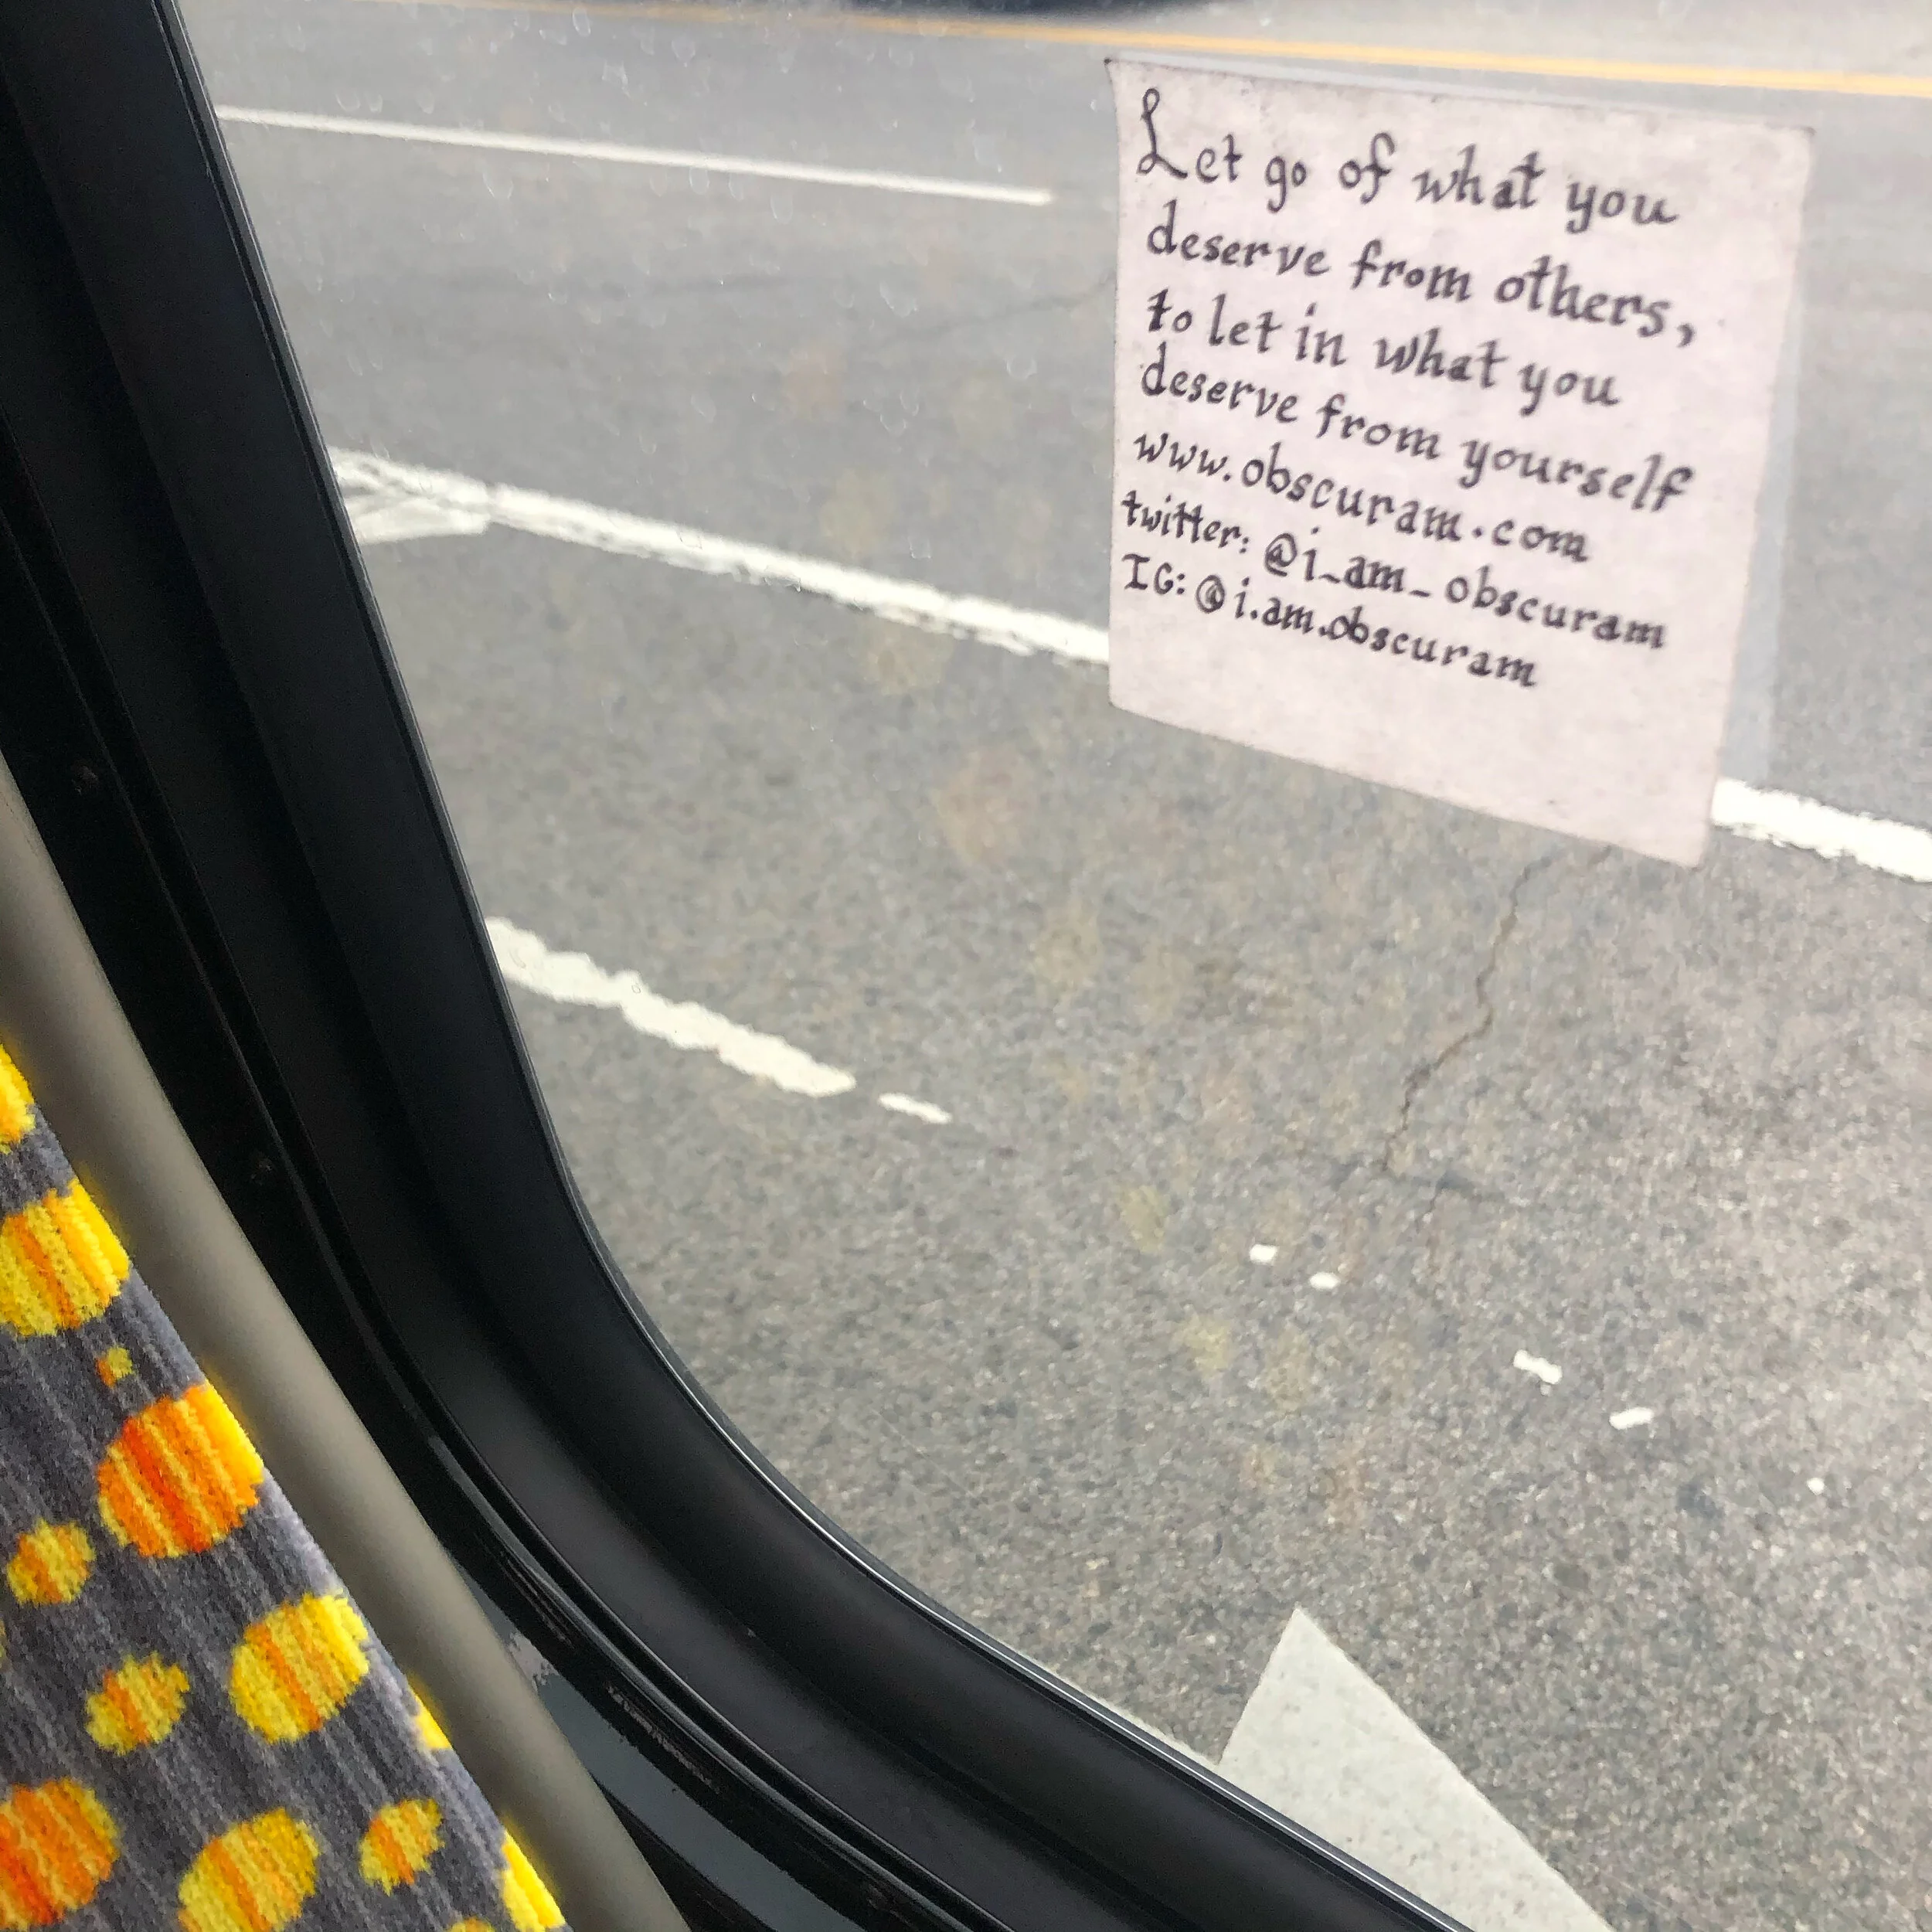 Let go of what you
deserve from others,
to let in what you
deserve from yourself
www.obscuram.com
twitter: @i_am_obscuram
IG: @i.am.obscuram